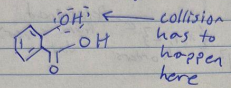 OH ← collision
has to
OH happen
here
O